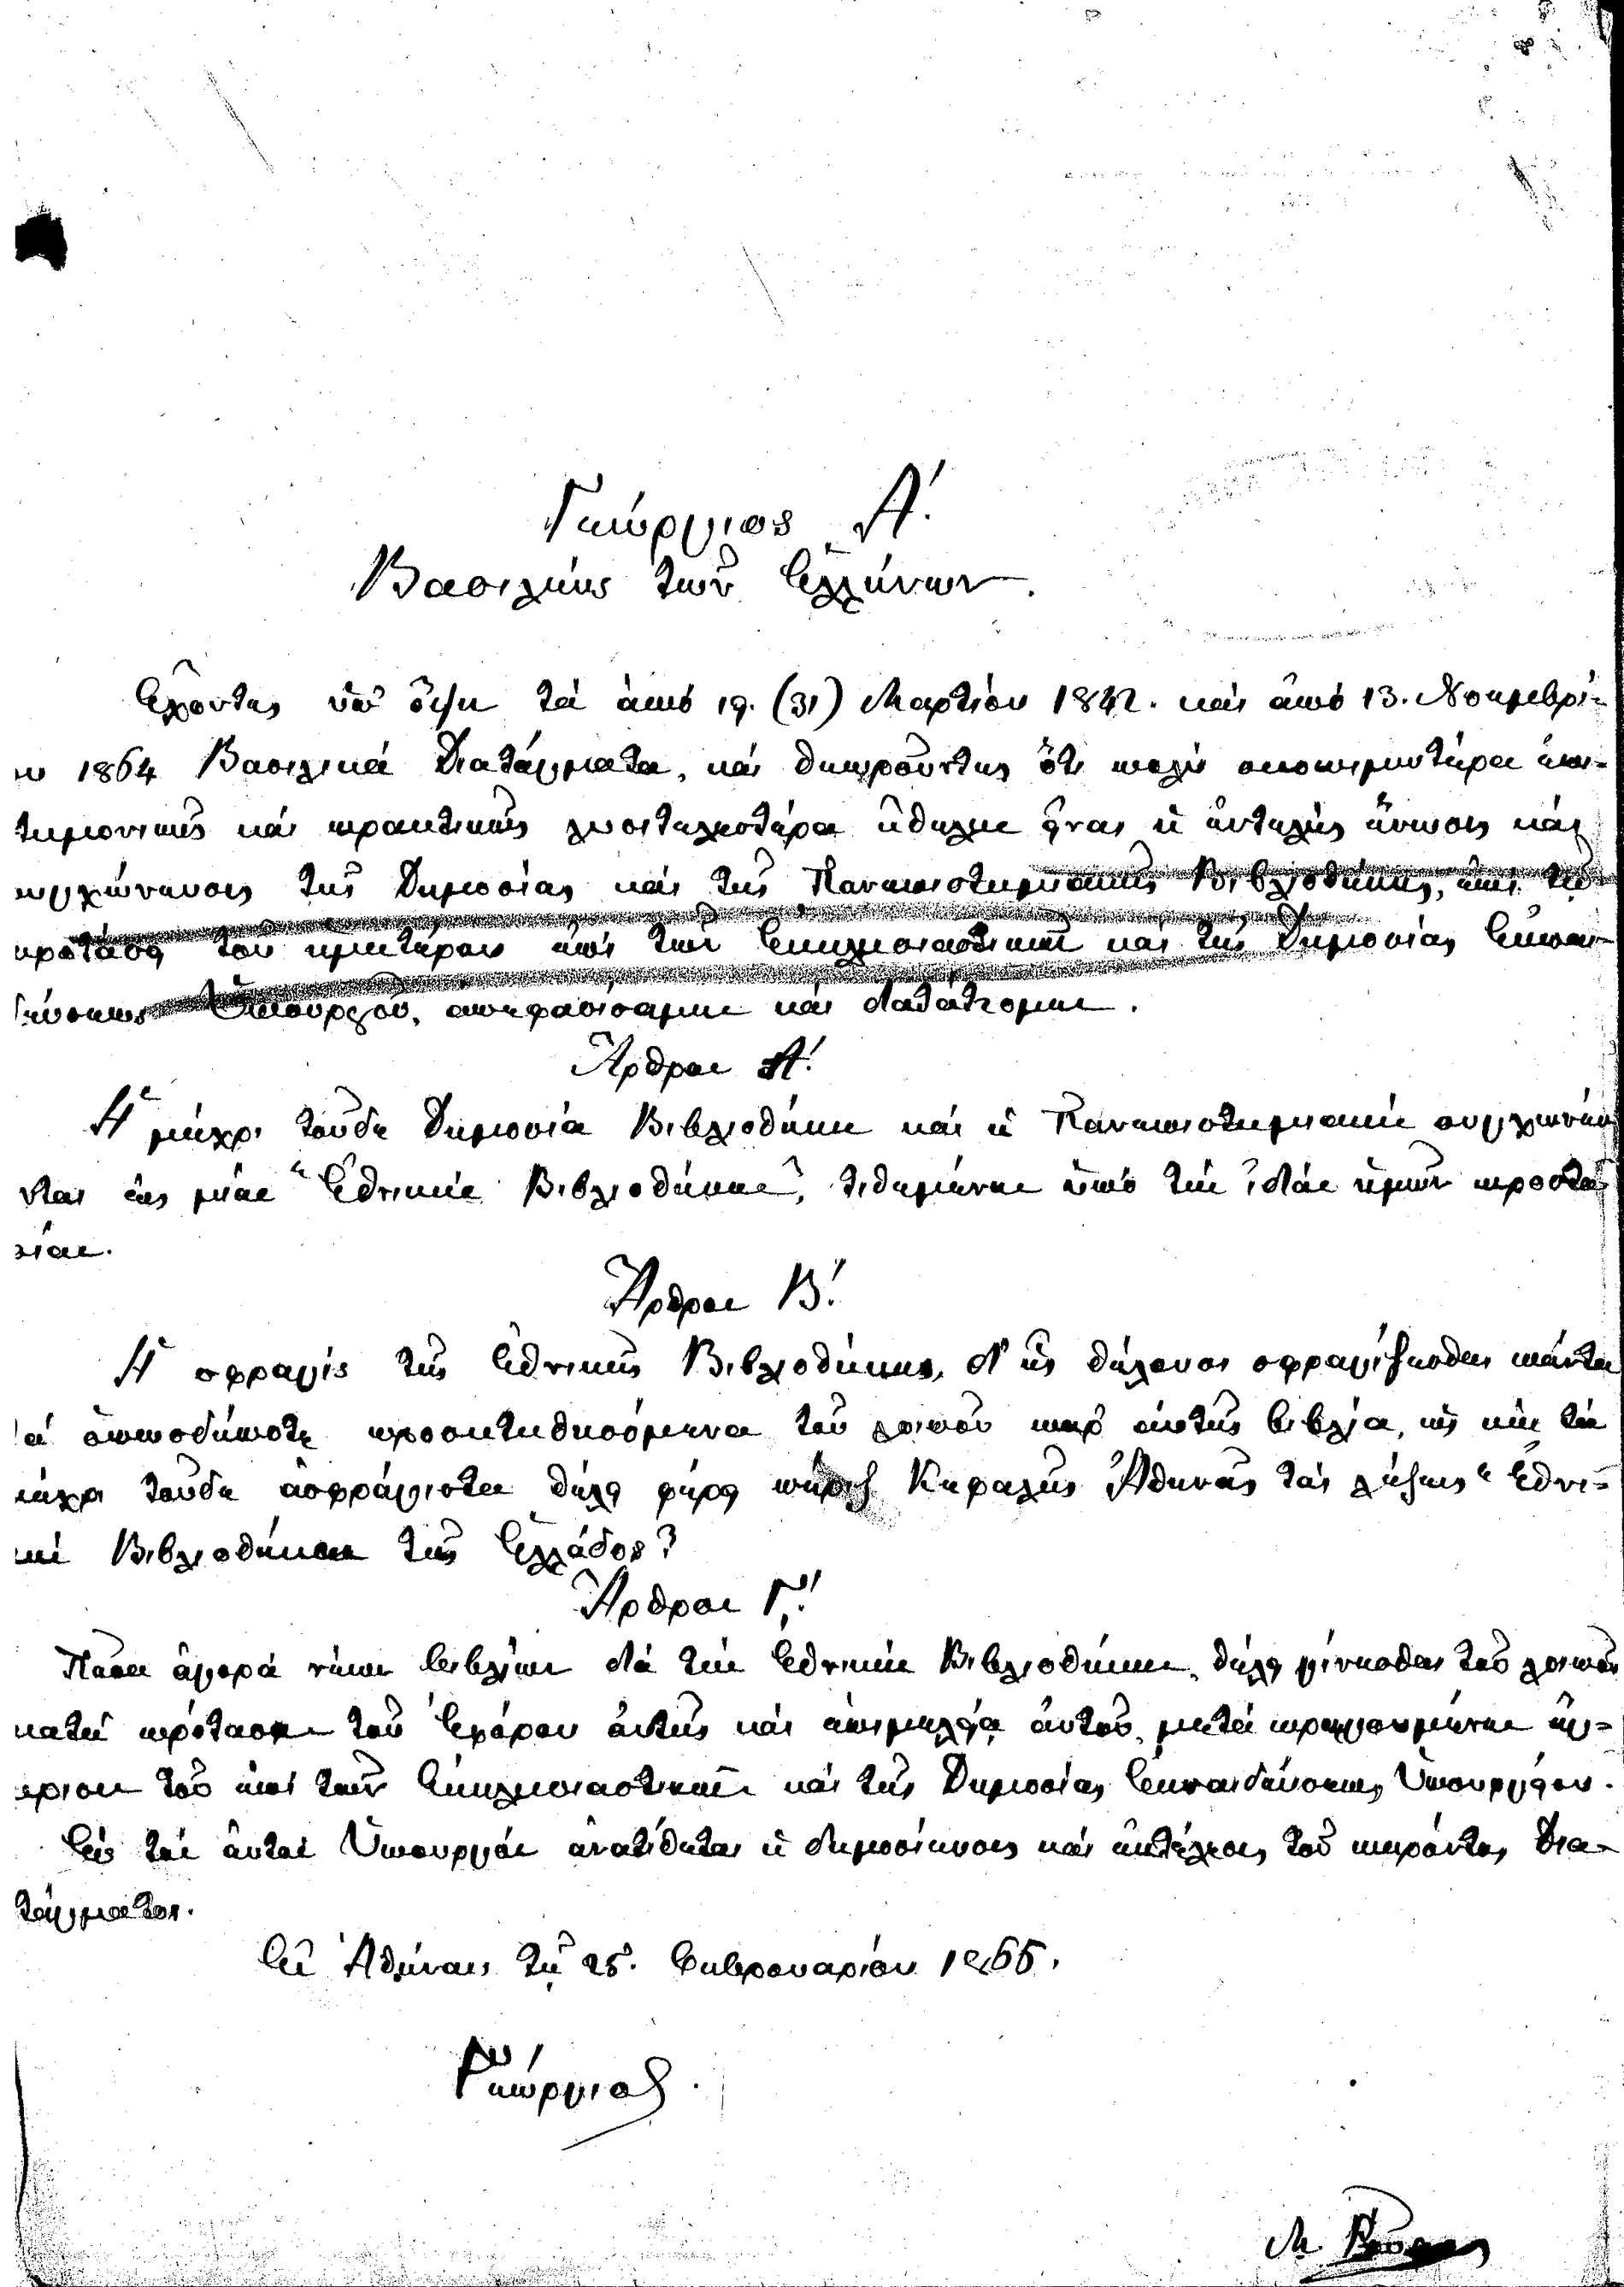 Γεώργιος Α΄.
Βασιλεύς τῶν Ἑλλήνων.
Ἔχοντες ὑπ' ὄψει τὰ ἀπό 19. (31) Μαρτίου 1842. καὶ ἀπό 13. Νοεμβρί-
ου 1864 Βασιλικά Διατάγματα, καὶ θεωροῦντες ὅτι πολύ σκοπιμωτέρα ἐπι-
στημονικῶς καὶ πρακτικῶς λυσιτελεστέρα ἤθελεν εἶναι ἡ ἐντελής ἕνωσις καὶ
συγχώνευσις τῆς Δημοσίας καὶ τῆς Πανεπιστημιακῆς Βιβλιοθήκης, ἐπί τῇ
προτάσει τοῦ ἡμετέρου ἐπί τῶν Ἐκκλησιαστικῶν καὶ τῆς Δημοσίας Ἐκπαι-
δεύσεως Ὑπουργοῦ, ἀπεφασίσαμεν καὶ διατάττομεν.
Ἄρθρον Α΄.
Ἡ μέχρι τοῦδε Δημοσία Βιβλιοθήκη καὶ ἡ Πανεπιστημιακή συγχωνεύον
ται εἰς μίαν "Ἐθνικήν Βιβλιοθήκην", τιθεμένην ὑπό τὴν ἰδίαν ἡμῶν προστα
σίαν.
Ἄρθρον Β΄.
Ἡ σφραγίς τῆς Ἐθνικῆς Βιβλιοθήκης, δι' ἧς θέλουσι σφραγίζεσθαι πάντα
τά ὁπωσδήποτε προσκτηθησόμενα τοῦ λοιποῦ παρ' αὐτῆς βιβλία, ὡς καὶ τά
μέχρι τοῦδε ἀσφράγιστα θέλει φέρει πέριξ Κεφαλῆς Ἀθηνᾶς τάς λέξεις "Ἐθνι-
κή Βιβλιοθήκη τῆς Ἑλλάδος"
Ἄρθρον Γ΄.
Πᾶσα ἀγορά νέων βιβλίων διά τήν Ἐθνικήν Βιβλιοθήκην, θέλει γίνεσθαι τοῦ λοιποῦ
κατά πρότασιν τοῦ Ἐφόρου αὐτῆς καὶ ἐπιμελείᾳ αὐτοῦ, μετά προηγουμένην ἔγ-
κρισιν τοῦ ἐπί τῶν Ἐκκλησιαστικῶν καὶ τῆς Δημοσίας Ἐκπαιδεύσεως Ὑπουργείου.
Εἰς τόν αὐτόν Ὑπουργόν ἀνατίθεται ἡ δημοσίευσις καὶ ἐκτέλεσις τοῦ παρόντος Δια-
τάγματος.
Ἐν Ἀθήναις τῇ 25. Φεβρουαρίου 1866.
Γεώργιος.